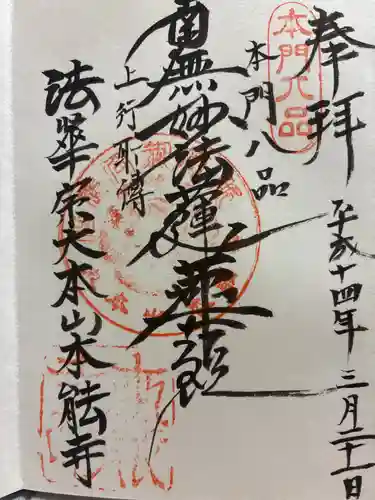 奉拝
平成十四年三月二十一日
本門八品
本門八品
南無妙法蓮華経
上行所傳
法華宗大本山本能寺